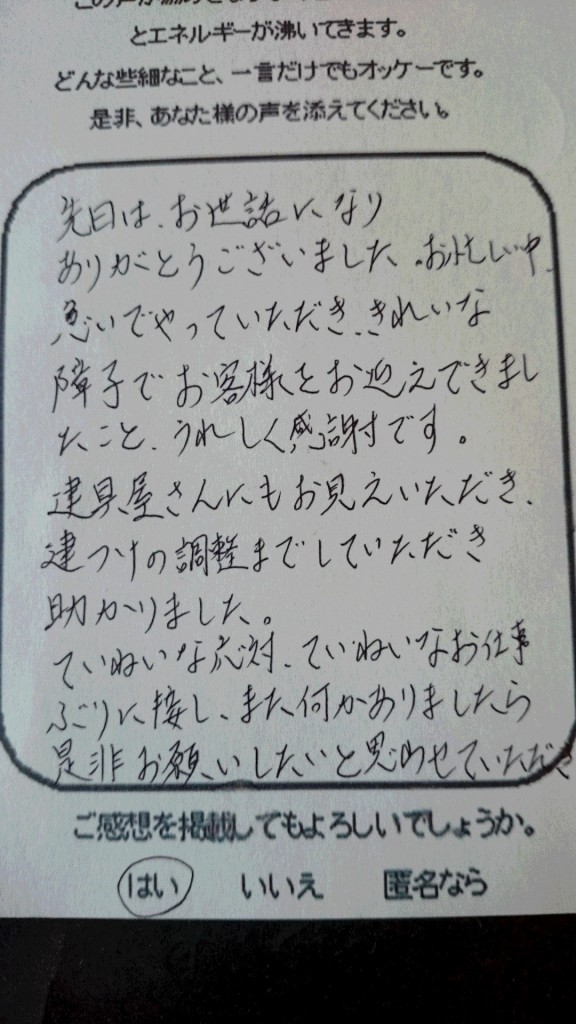 とエネルギーが沸いてきます。
どんな些細なこと、一言だけでもオッケーです。
是非、あなた様の声を添えてください。
先日は、お世話になり
ありがとうございました。お忙しい中、
急いでやっていただき、きれいな
障子でお客様をお迎えできまし
たこと、うれしく感謝です。
建具屋さんにもお見えいただき、
建つけの調整までしていただき
助かりました。
ていねいな応対、ていねいなお仕事
ぶりに接し、また何かありましたら
是非お願いしたいと思わせていただき
ご感想を掲載してもよろしいでしょうか。
はい いいえ 匿名なら